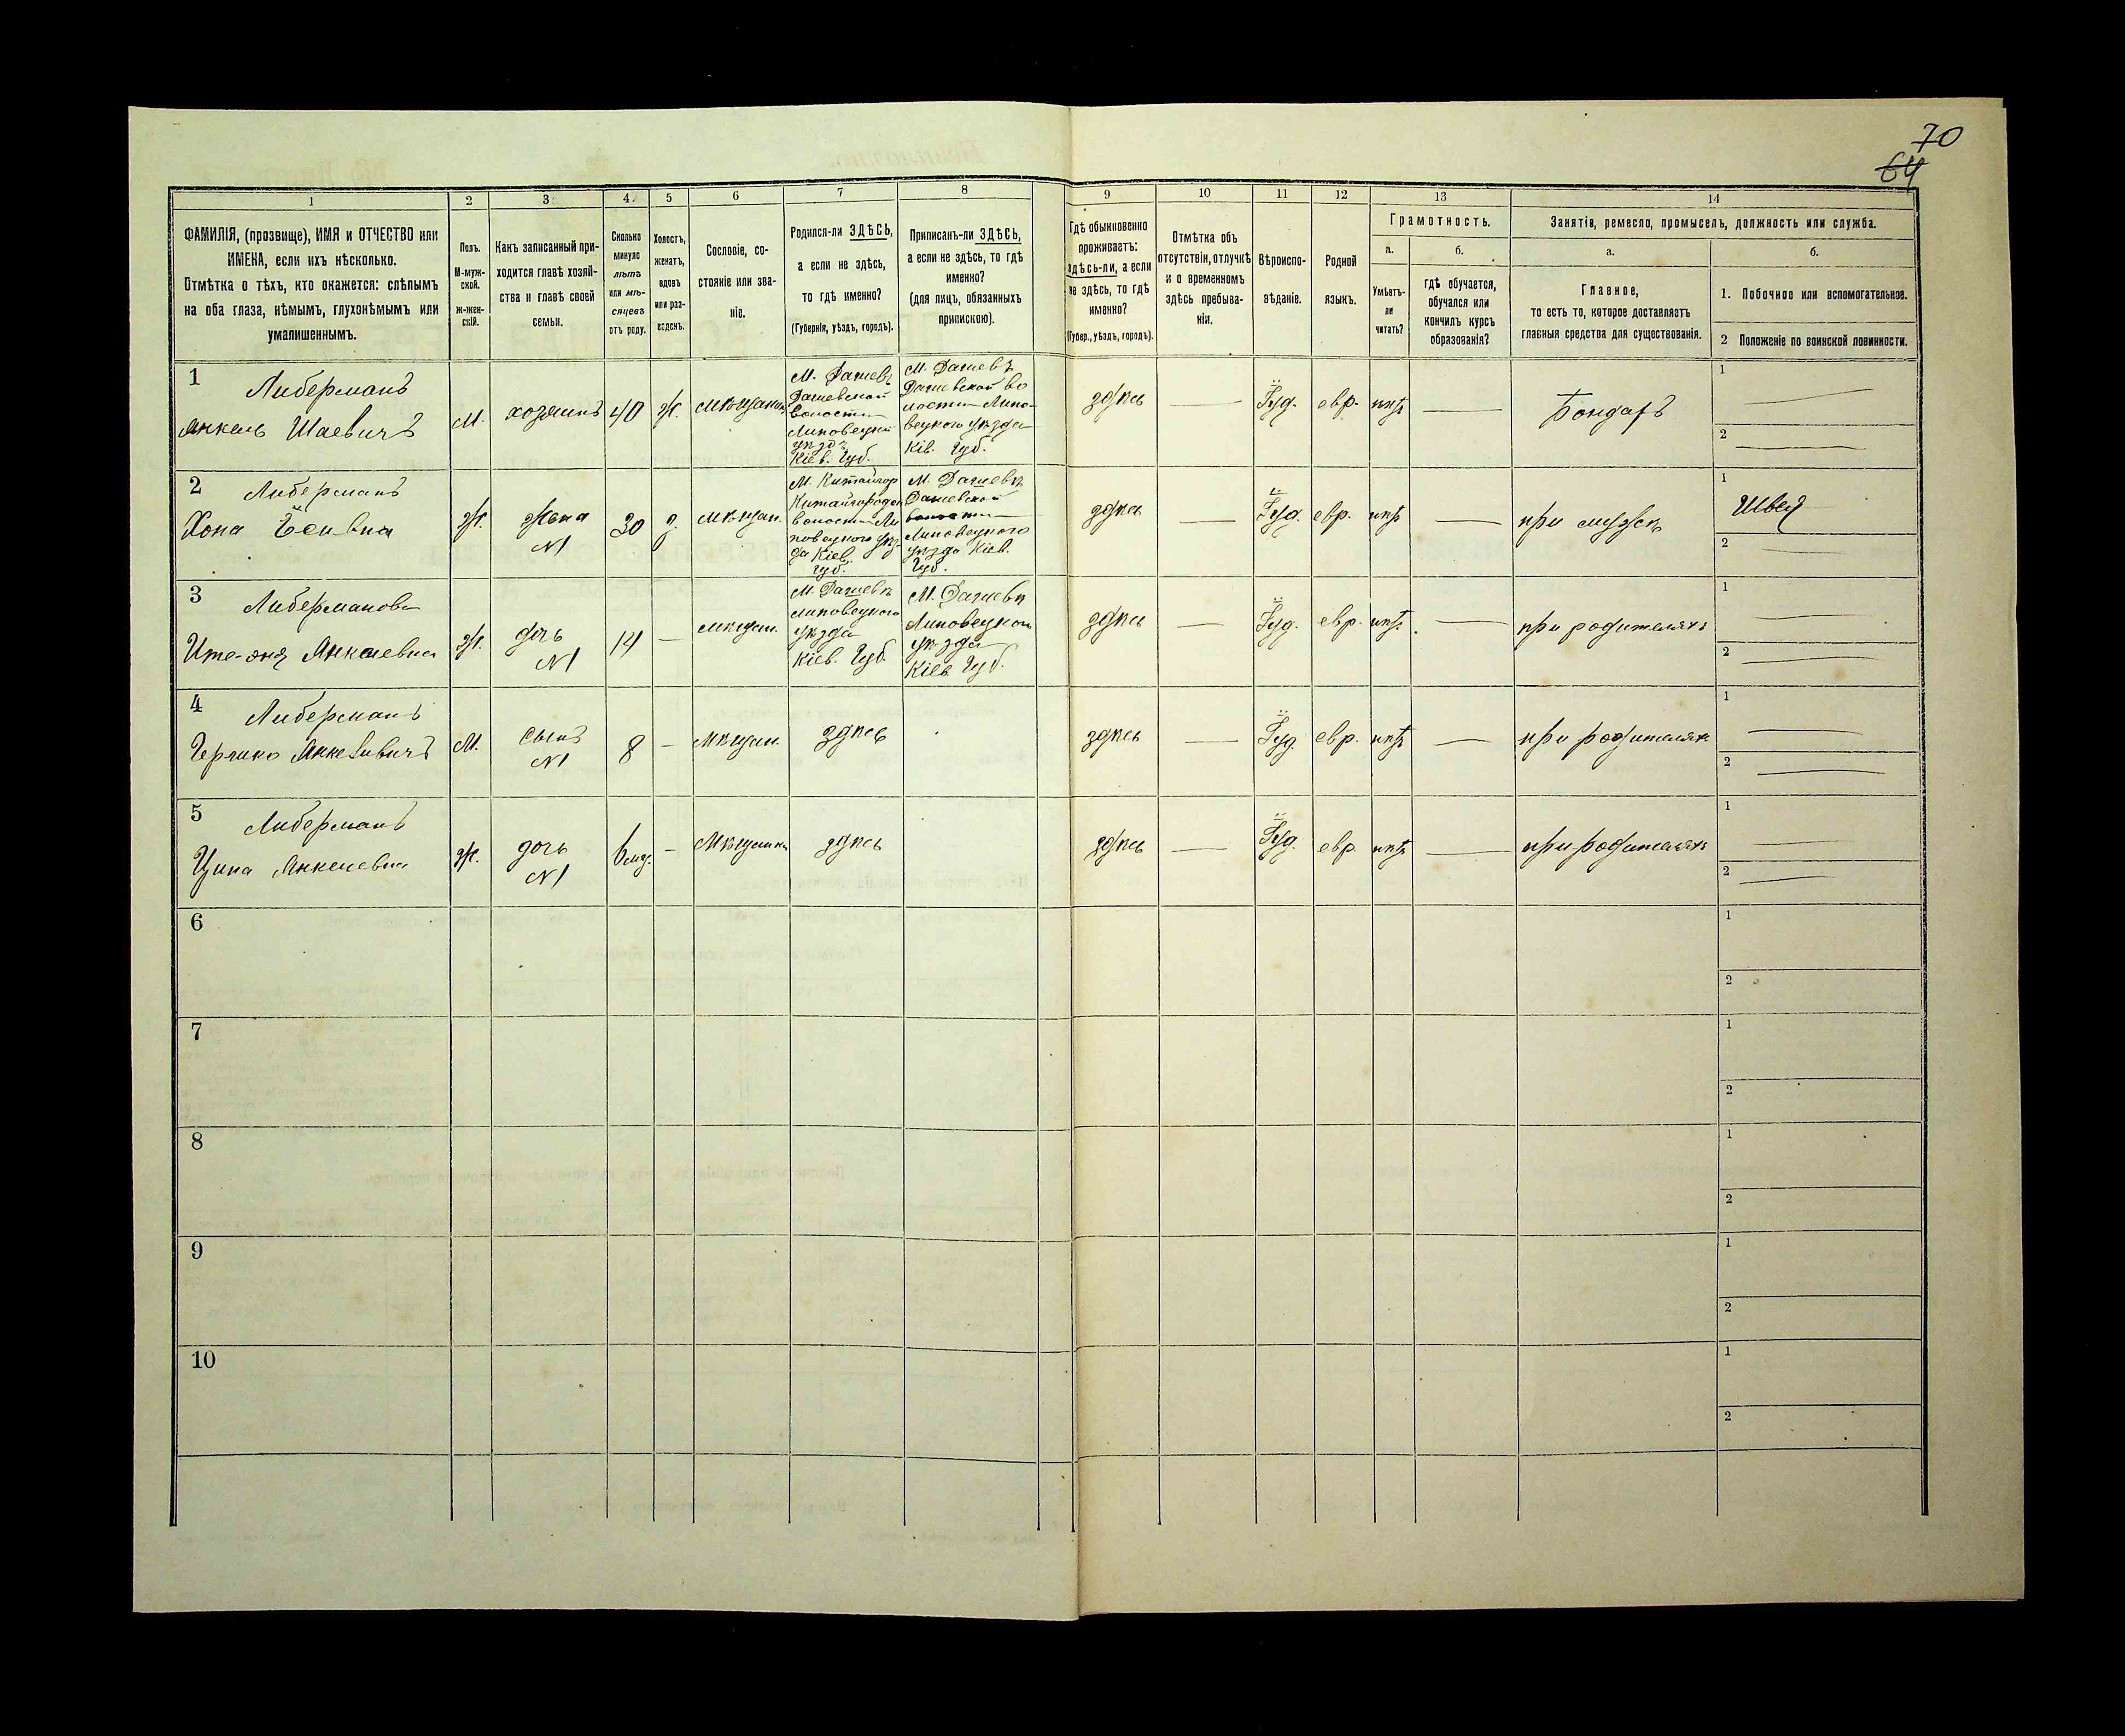 70
64
1
2
3
4
5
6
7
8
9
10
11
12
13
14
ФАМИЛІЯ, (прозвище), ИМЯ и ОТЧЕСТВО или
ИМЕНА, если ихъ нѣсколько.
Отмѣтка о тѣхъ, кто окажется: слѣпымъ
на оба глаза, нѣмымъ, глухонѣмымъ или
умалишеннымъ.
Полъ.
М-муж-
ской.
Ж-жен-
скій.
Какъ записанный при-
ходится главѣ хозяй-
ства и главѣ своей
семьи.
Сколько
минуло
лѣтъ
или мѣ-
сяцевъ
отъ роду.
Холостъ,
женатъ,
вдовъ
или раз-
веденъ.
Сословіе, со-
стояніе или зва-
ніе.
Родился-ли ЗДѢСЬ,
а если не здѣсь,
то гдѣ именно?
(Губернія, уѣздъ, городъ).
Приписанъ-ли ЗДѢСЬ,
а если не здѣсь, то гдѣ
именно?
(для лицъ, обязанныхъ
припискою).
Гдѣ обыкновенно
проживаетъ:
здѣсь-ли, а если
не здѣсь, то гдѣ
именно?
(Губер., уѣздъ, городъ).
Отмѣтка объ
отсутствіи, отлучкѣ
и о временномъ
здѣсь пребыва-
ніи.
Вѣроиспо-
вѣданіе.
Родной
языкъ.
Грамотность.
а.
Умѣетъ-
ли
читать?
б.
гдѣ обучается,
обучался или
кончилъ курсъ
образованія?
Занятія, ремесло, промыселъ, должность или служба.
а.
Главное,
то есть то, которое доставляетъ
главныя средства для существованія.
б.
1. Побочное или вспомогательное.
2 Положеніе по воинской повинности.
1
Либерманъ
Янкель Шаевичъ
М.
хозяинъ
40
ж.
мѣщанин
М. Дашевъ
Дашевской
волости
Липовецкаго
уѣзда
Кіев. Губ.
М. Дашевъ
Дашевской во
лости Липо-
вецкого уѣзда
Кіев. Губ.
здѣсь
Іуд.
евр.
нѣтъ
Бондарь
1
2
2
Либерманъ
Хона
Ж.
жена
N1
30
з.
мѣщан.
М. Китайгор
Китайгородск
волости Ли
повецкого уѣз
да Кіев.
Губ.
М. Дашевъ
Дашевской
волости
Липовецкого
уѣзда Кіев.
Губ.
здѣсь
Іуд.
евр.
нѣтъ
при мужѣ
1
Швея
2
3
Либерманова
Янкелевна
ж.
дочь
N1
14
мѣщан.
М. Дашевъ
Липовецкого
уѣзда
Кіев. Губ.
М. Дашевъ
Липовецкого
уѣзда
Кіев. Губ.
здѣсь
Іуд.
евр.
нѣтъ.
при родителяхъ
1
2
4
Либерманъ
Гершко Янкелевичъ
М.
сынъ
N1
8
мѣщан.
здѣсь
здѣсь
Іуд.
евр.
нѣтъ
при родителяхъ
1
2
5
Либерманъ
Цина Янкелевна
ж.
дочь
N1
6 мѣс.
мѣщанка
здѣсь
здѣсь
Іуд.
евр.
нѣтъ
при родителяхъ
1
2
6
1
2
7
1
2
8
1
2
9
1
2
10
1
2